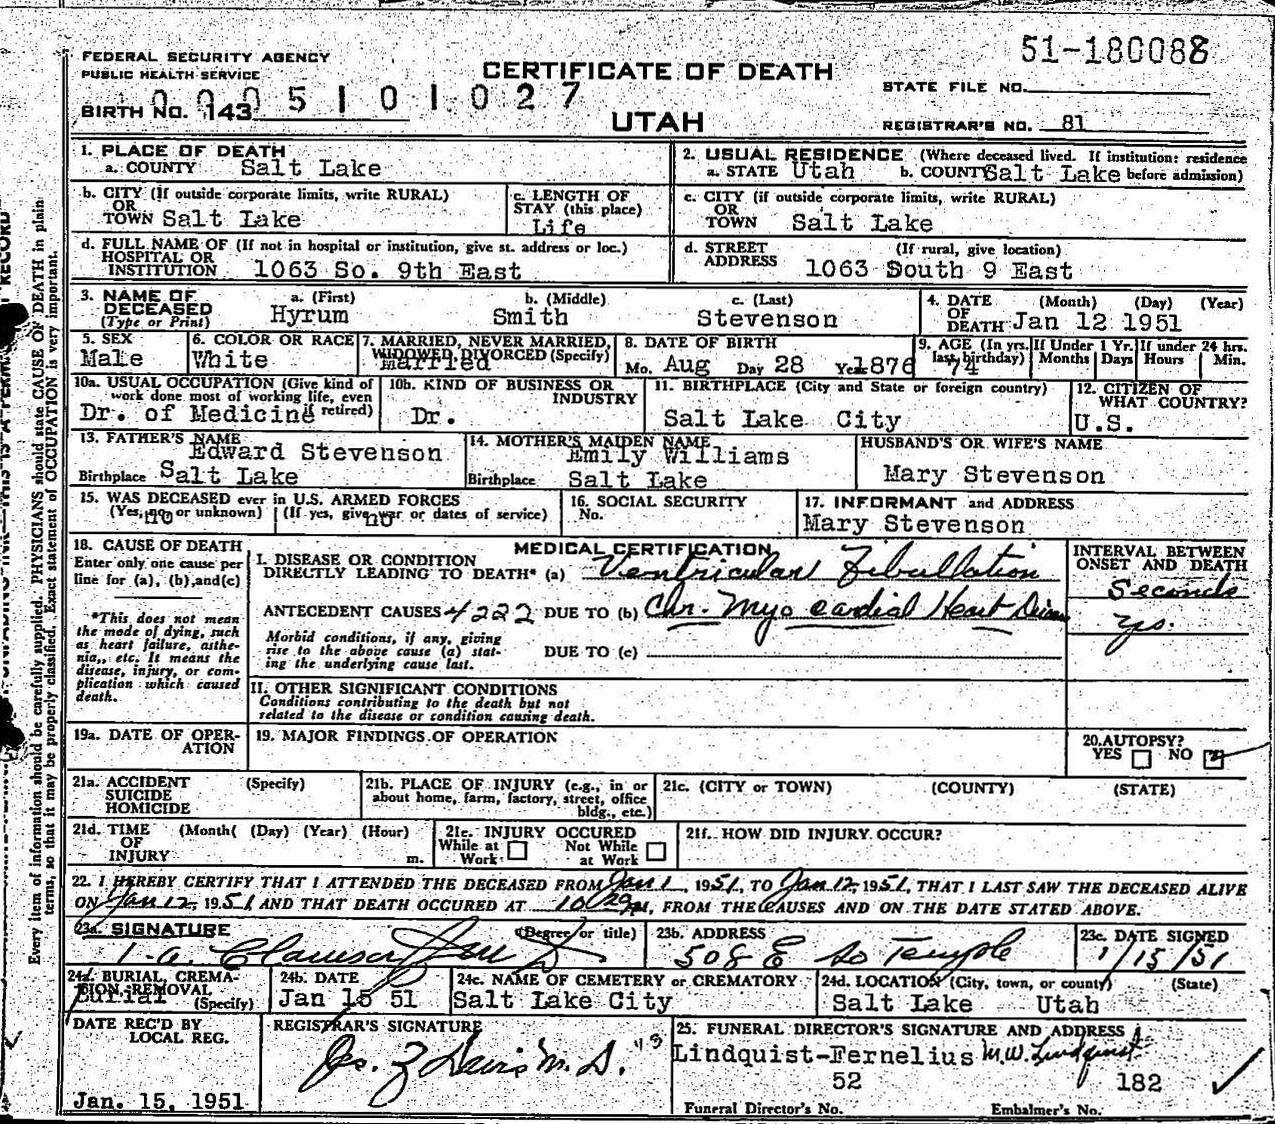 51-180088
FEDERAL SECURITY AGENCY
PUBLIC HEALTH SERVICE
CERTIFICATE OF DEATH
STATE FILE NO.
0005101027
BIRTH NO. 143
UTAH
REGISTRAR'S NO. 81
1. PLACE OF DEATH
a. COUNTY Salt Lake
2. USUAL RESIDENCE (Where deceased lived. If institution: residence before admission)
a. STATE Utah b. COUNTY Salt Lake
b. CITY (If outside corporate limits, write RURAL)
OR
TOWN Salt Lake
c. LENGTH OF
STAY (this place)
Life
c. CITY (if outside corporate limits, write RURAL)
OR
TOWN Salt Lake
d. FULL NAME OF (If not in hospital or institution, give st. address or loc.)
HOSPITAL OR
INSTITUTION 1063 So. 9th East
d. STREET (If rural, give location)
ADDRESS 1063 South 9 East
3. NAME OF
DECEASED
(Type or Print)
a. (First) b. (Middle) c. (Last)
Hyrum Smith Stevenson
4. DATE (Month) (Day) (Year)
OF
DEATH Jan 12 1951
5. SEX
Male
6. COLOR OR RACE
White
7. MARRIED, NEVER MARRIED,
WIDOWED, DIVORCED (Specify)
Married
8. DATE OF BIRTH
Mo. Aug Day 28 Yr. 1876
9. AGE (In yrs. last birthday) 74
If Under 1 Yr. Months Days
If under 24 hrs. Hours Min.
10a. USUAL OCCUPATION (Give kind of
work done most of working life, even
if retired)
Dr. of Medicine
10b. KIND OF BUSINESS OR
INDUSTRY
Dr.
11. BIRTHPLACE (City and State or foreign country)
Salt Lake City
12. CITIZEN OF
WHAT COUNTRY?
U.S.
13. FATHER'S NAME
Edward Stevenson
Birthplace Salt Lake
14. MOTHER'S MAIDEN NAME
Emily Williams
Birthplace Salt Lake
HUSBAND'S OR WIFE'S NAME
Mary Stevenson
15. WAS DECEASED ever in U.S. ARMED FORCES
(Yes, no or unknown) (If yes, give war or dates of service)
no no
16. SOCIAL SECURITY
No.
17. INFORMANT and ADDRESS
Mary Stevenson
18. CAUSE OF DEATH
Enter only one cause per
line for (a), (b), and (c)
*This does not mean
the mode of dying, such
as heart failure, asthe-
nia,, etc. It means the
disease, injury, or com-
plication which caused
death.
MEDICAL CERTIFICATION
I. DISEASE OR CONDITION
DIRECTLY LEADING TO DEATH* (a) Ventricular Fibullation
ANTECEDENT CAUSES 4222 DUE TO (b) Chr. Myocardial Heart
Morbid conditions, if any, giving
rise to the above cause (a) stat-
ing the underlying cause last.
DUE TO (c)
INTERVAL BETWEEN
ONSET AND DEATH
Seconds
Yrs.
II. OTHER SIGNIFICANT CONDITIONS
Conditions contributing to the death but not
related to the disease or condition causing death.
19a. DATE OF OPER-
ATION
19. MAJOR FINDINGS OF OPERATION
20. AUTOPSY?
YES NO
21a. ACCIDENT (Specify)
SUICIDE
HOMICIDE
21b. PLACE OF INJURY (e.g., in or
about home, farm, factory, street, office
bldg., etc.)
21c. (CITY or TOWN) (COUNTY) (STATE)
21d. TIME (Month( (Day) (Year) (Hour)
OF
INJURY m.
21e. INJURY OCCURED
While at Work Not While at Work
21f. HOW DID INJURY OCCUR?
22. I HEREBY CERTIFY THAT I ATTENDED THE DECEASED FROM Jan 1, 1951, TO Jan 12, 1951, THAT I LAST SAW THE DECEASED ALIVE
ON Jan 12, 1951 AND THAT DEATH OCCURED AT M., FROM THE CAUSES AND ON THE DATE STATED ABOVE.
23a. SIGNATURE (Degree or title)
23b. ADDRESS
508 E So Temple
23c. DATE SIGNED
1/15/51
24a. BURIAL, CREMA-
TION, REMOVAL
(Specify)
Burial
24b. DATE
Jan 15 51
24c. NAME OF CEMETERY or CREMATORY
Salt Lake City
24d. LOCATION (City, town, or county) (State)
Salt Lake Utah
DATE REC'D BY
LOCAL REG.
Jan. 15, 1951
REGISTRAR'S SIGNATURE
Jos. Z Davis M.D.
25. FUNERAL DIRECTOR'S SIGNATURE AND ADDRESS
Lindquist-Fernelius M.W. Lindquist
52 182
Funeral Director's No. Embalmer's No.
Every item of information should be carefully supplied. PHYSICIANS should state CAUSE OF DEATH in plain
terms, so that it may be properly classified. Exact statement of OCCUPATION is very important.